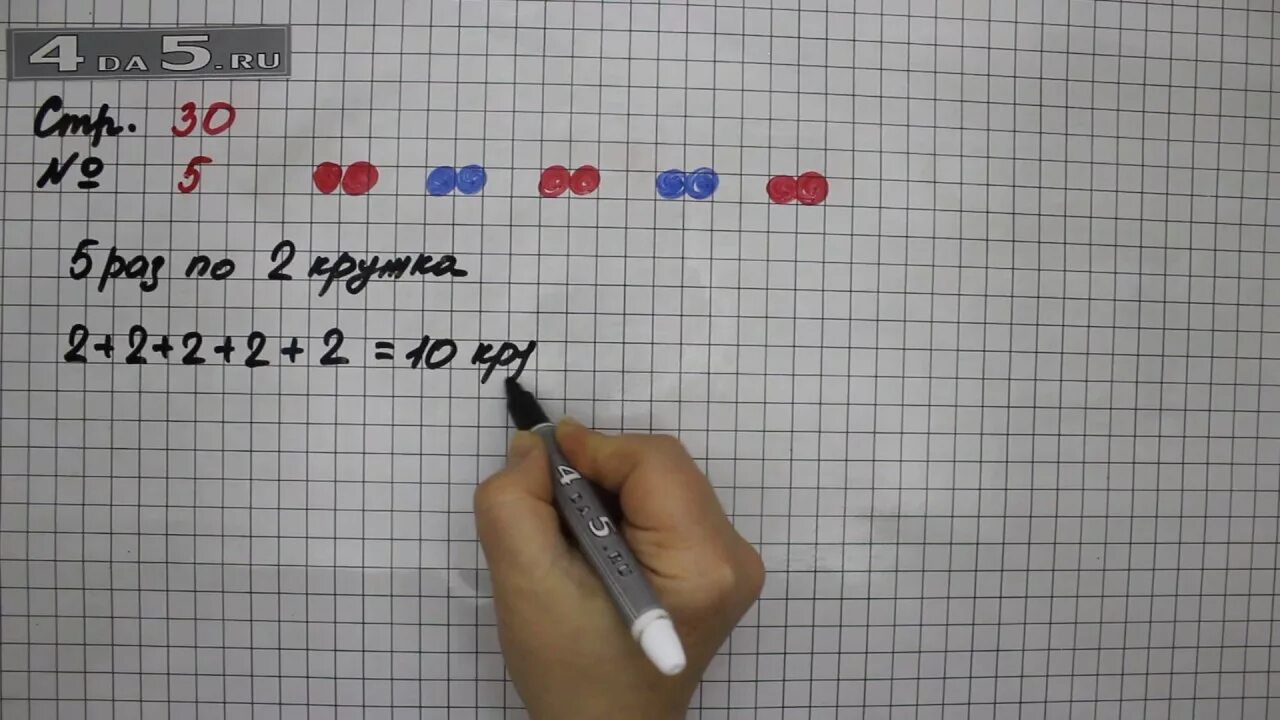 4DA5.RU
Стр. 30
№ 5
5 раз по 2 кружка
2+2+2+2+2 = 10 кру
4DA5.RU